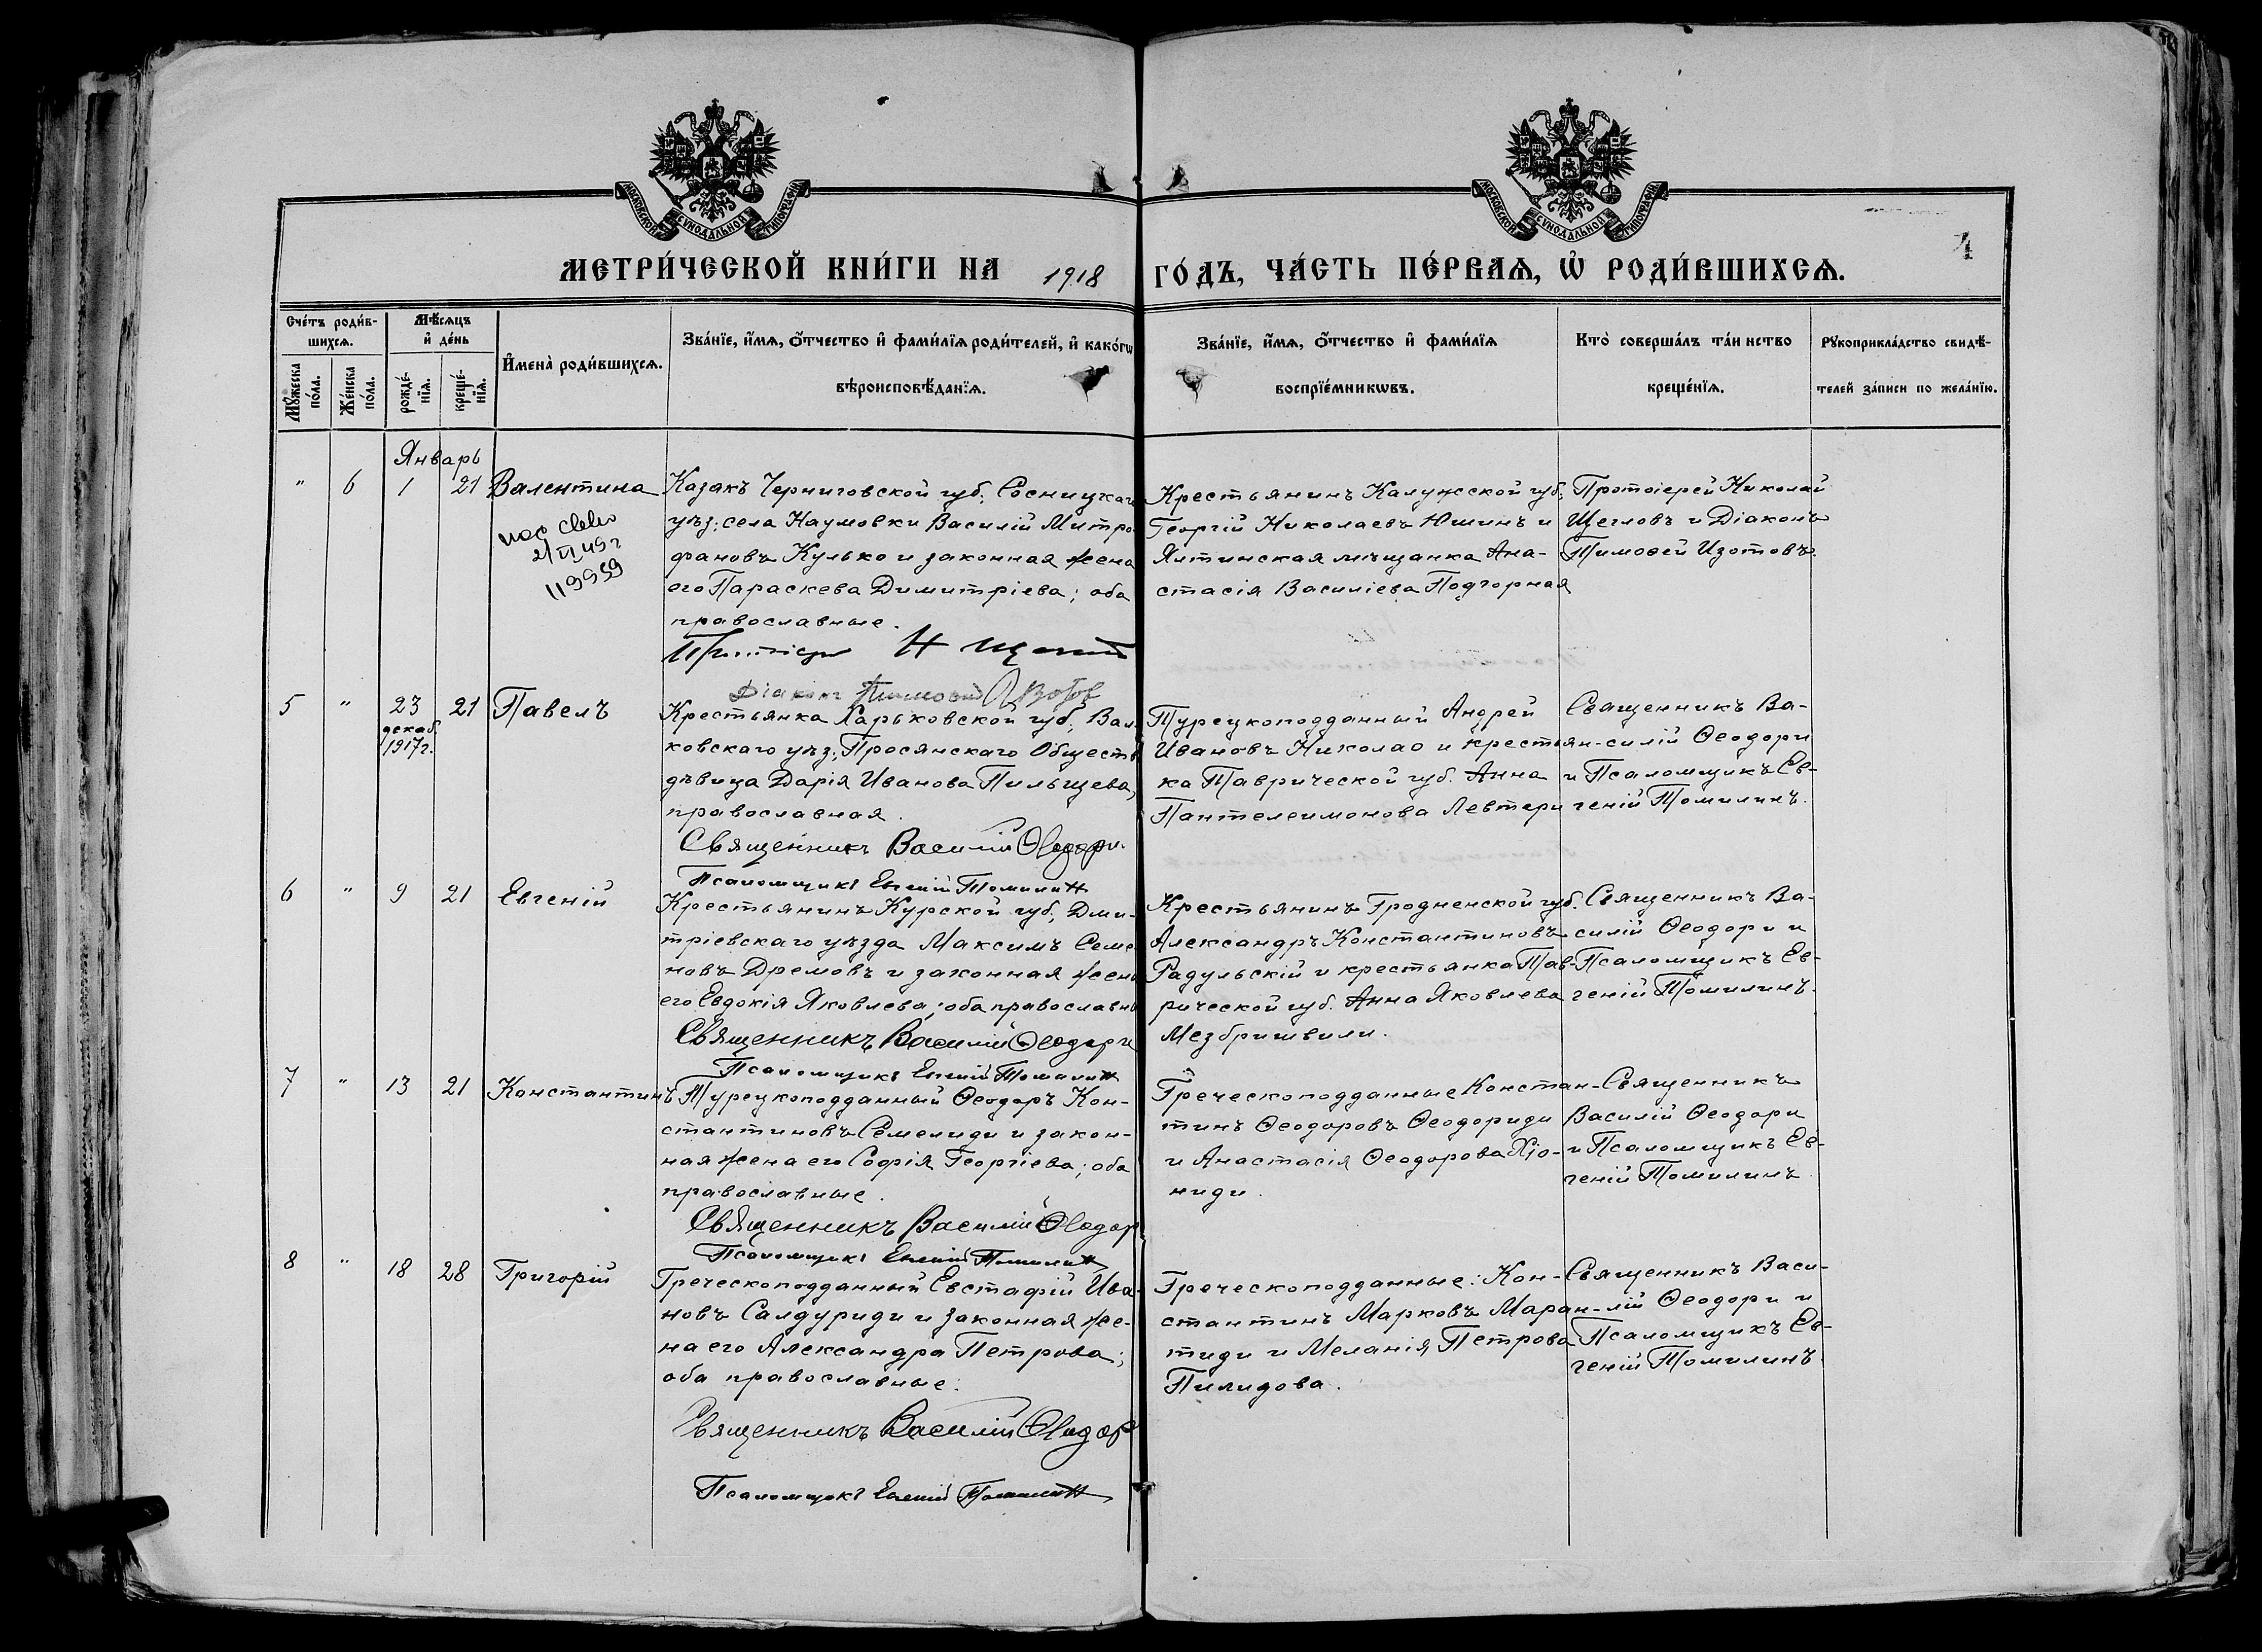 МОСКОВСКОЙ СѴНОДАЛЬНОЙ ТИПОГРАФІИ
МОСКОВСКОЙ СѴНОДАЛЬНОЙ ТИПОГРАФІИ
4
МЕТРИ́ЧЕСКОЙ КНИ́ГИ НА 1918 ГО́ДЪ, ЧА́СТЬ ПЕ́РВАѦ, Ѡ҆ РОДИ́ВШИХСѦ.
Сче́тъ роди́в-
шихсѧ.
Мꙋ́жеска по́ла.
Же́нска по́ла.
Мѣ́сѧцъ
и҆ де́нь
рожде́-
нїѧ.
креще́-
нїѧ.
И҆мена̀ роди́вшихсѧ.
Зва́нїе, и҆́мѧ, ѻ҆́тчество и҆ фами́лїѧ роди́телей, и҆ како́гѡ
вѣроисповѣ́данїѧ.
Зва́нїе, и҆́мѧ, ѻ҆́тчество и҆ фами́лїѧ
воспрїе́мникѡвъ.
Кто̀ соверша́лъ та́инство
креще́нїѧ.
Рꙋкоприкла́дство свидѣ́-
телей за́писи по жела́нїю.
Январь
" 6 1 21 Валентина
2/VI 49 г
119959
Казакъ Черниговской губ. Сосницкаго
уѣз: села Наумовки Василій Митро
фановъ Кулько и законная жена
его Параскева Димитріева; оба
православные.
Діаконъ Тимоѳей Изотов
Крестьянинъ Калужской губ.
Георгій Николаевъ Юшинъ и
Ялтинская мѣщанка Ана-
стасія Василіева Подгорная
Протоіерей Николай
Щегловъ и Діаконъ
Тимоѳей Изотовъ.
5 " 23 21 Павелъ
декаб.
1917 г.
Крестьянка Харьковской губ. Вал-
ковскаго уѣз; Просянскаго Обществ
дѣвица Дарія Иванова Пильщева,
православная.
Священникъ Василій Ѳеодори.
Псаломщикъ Евгеній Томилин
Турецкоподданный Андрей
Ивановъ Николао и крестьян-
ка Таврической губ. Анна
Пантелеимонова Левтери
Священникъ Ва-
силій Ѳеодори
и Псаломщикъ Ев-
геній Томилинъ.
6 " 9 21 Евгеній
Крестьянинъ Курской губ. Дми-
тріевскаго уѣзда Максимъ Семе
новъ Дремовъ и законная жена
его Евдокія Яковлева; оба православны
Священникъ Василій Ѳеодори
Псаломщикъ Евгеній Томилин
Крестьянинъ Гродненской губ.
Александръ Константиновъ
Радульскій и крестьянка Тав-
рической губ. Анна Яковлева
Мезбришвили.
Священникъ Ва-
силій Ѳеодори и
Псаломщикъ Ев-
геній Томилинъ.
7 " 13 21 Константинъ
Турецкоподданный Ѳеодоръ Кон-
стантиновъ Семелиди и закон-
ная жена его Софія Георгіева; оба
православные.
Священникъ Василій Ѳеодор
Псаломщикъ Евгеній Томилин
Греческоподданные Констан-
тинъ Ѳеодоровъ Ѳеодориди
и Анастасія Ѳеодорова Хіо-
ниди.
Священникъ
Василій Ѳеодори
и Псаломщикъ Ев-
геній Томилинъ.
8 " 18 28 Григорій
Греческоподданный Евстафій Ива-
новъ Салдуриди и законная же-
на его Александра Петрова;
оба православные.
Священникъ Василій Ѳеодор
Псаломщикъ Евгеній Томилин
Греческоподданные: Кон-
стантинъ Марковъ Маран-
тиди и Меланія Петрова
Пилидова.
Священникъ Васи-
лій Ѳеодори и
Псаломщикъ Ев-
геній Томилинъ.